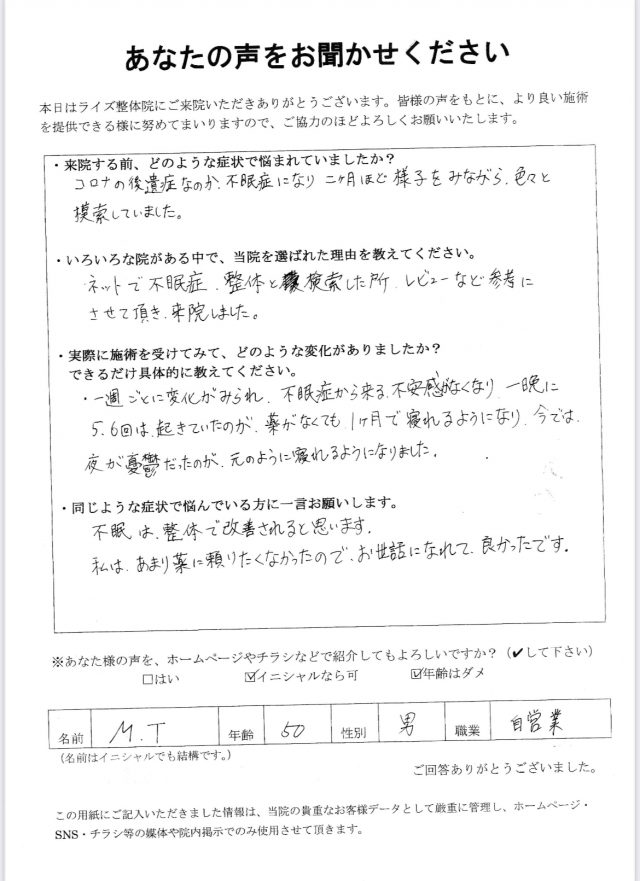 あなたの声をお聞かせください
本日はライズ整体院にご来院いただきありがとうございます。皆様の声をもとに、より良い施術
を提供できる様に努めてまいりますので、ご協力のほどよろしくお願いいたします。
・来院する前、どのような症状で悩まれていましたか？
コロナの後遺症なのか、不眠症になり 二ヶ月ほど様子をみながら、色々と
摸索していました。
・いろいろな院がある中で、当院を選ばれた理由を教えてください。
ネットで不眠症、整体と検索した所、レビューなど参考に
させて頂き、来院しました。
・実際に施術を受けてみて、どのような変化がありましたか？
できるだけ具体的に教えてください。
・一週ごとに変化がみられ、不眠症から来る、不安感がなくなり、一晩に
5.6回は、起きていたのが、薬がなくても、1ヶ月で寝れるようになり、今では、
夜が憂鬱だったのが、元のように寝れるようになりました。
・同じような症状で悩んでいる方に一言お願いします。
不眠は、整体で改善されると思います。
私は、あまり薬に頼りたくなかったので、お世話になれて、良かったです。
※あなた様の声を、ホームページやチラシなどで紹介してもよろしいですか？（✔して下さい）
□はい ☑イニシャルなら可 ☑年齢はダメ
名前 M.T 年齢 50 性別 男 職業 自営業
（名前はイニシャルでも結構です。）
ご回答ありがとうございました。
この用紙にご記入いただきました情報は、当院の貴重なお客様データとして厳重に管理し、ホームページ・
SNS・チラシ等の媒体や院内掲示でのみ使用させて頂きます。